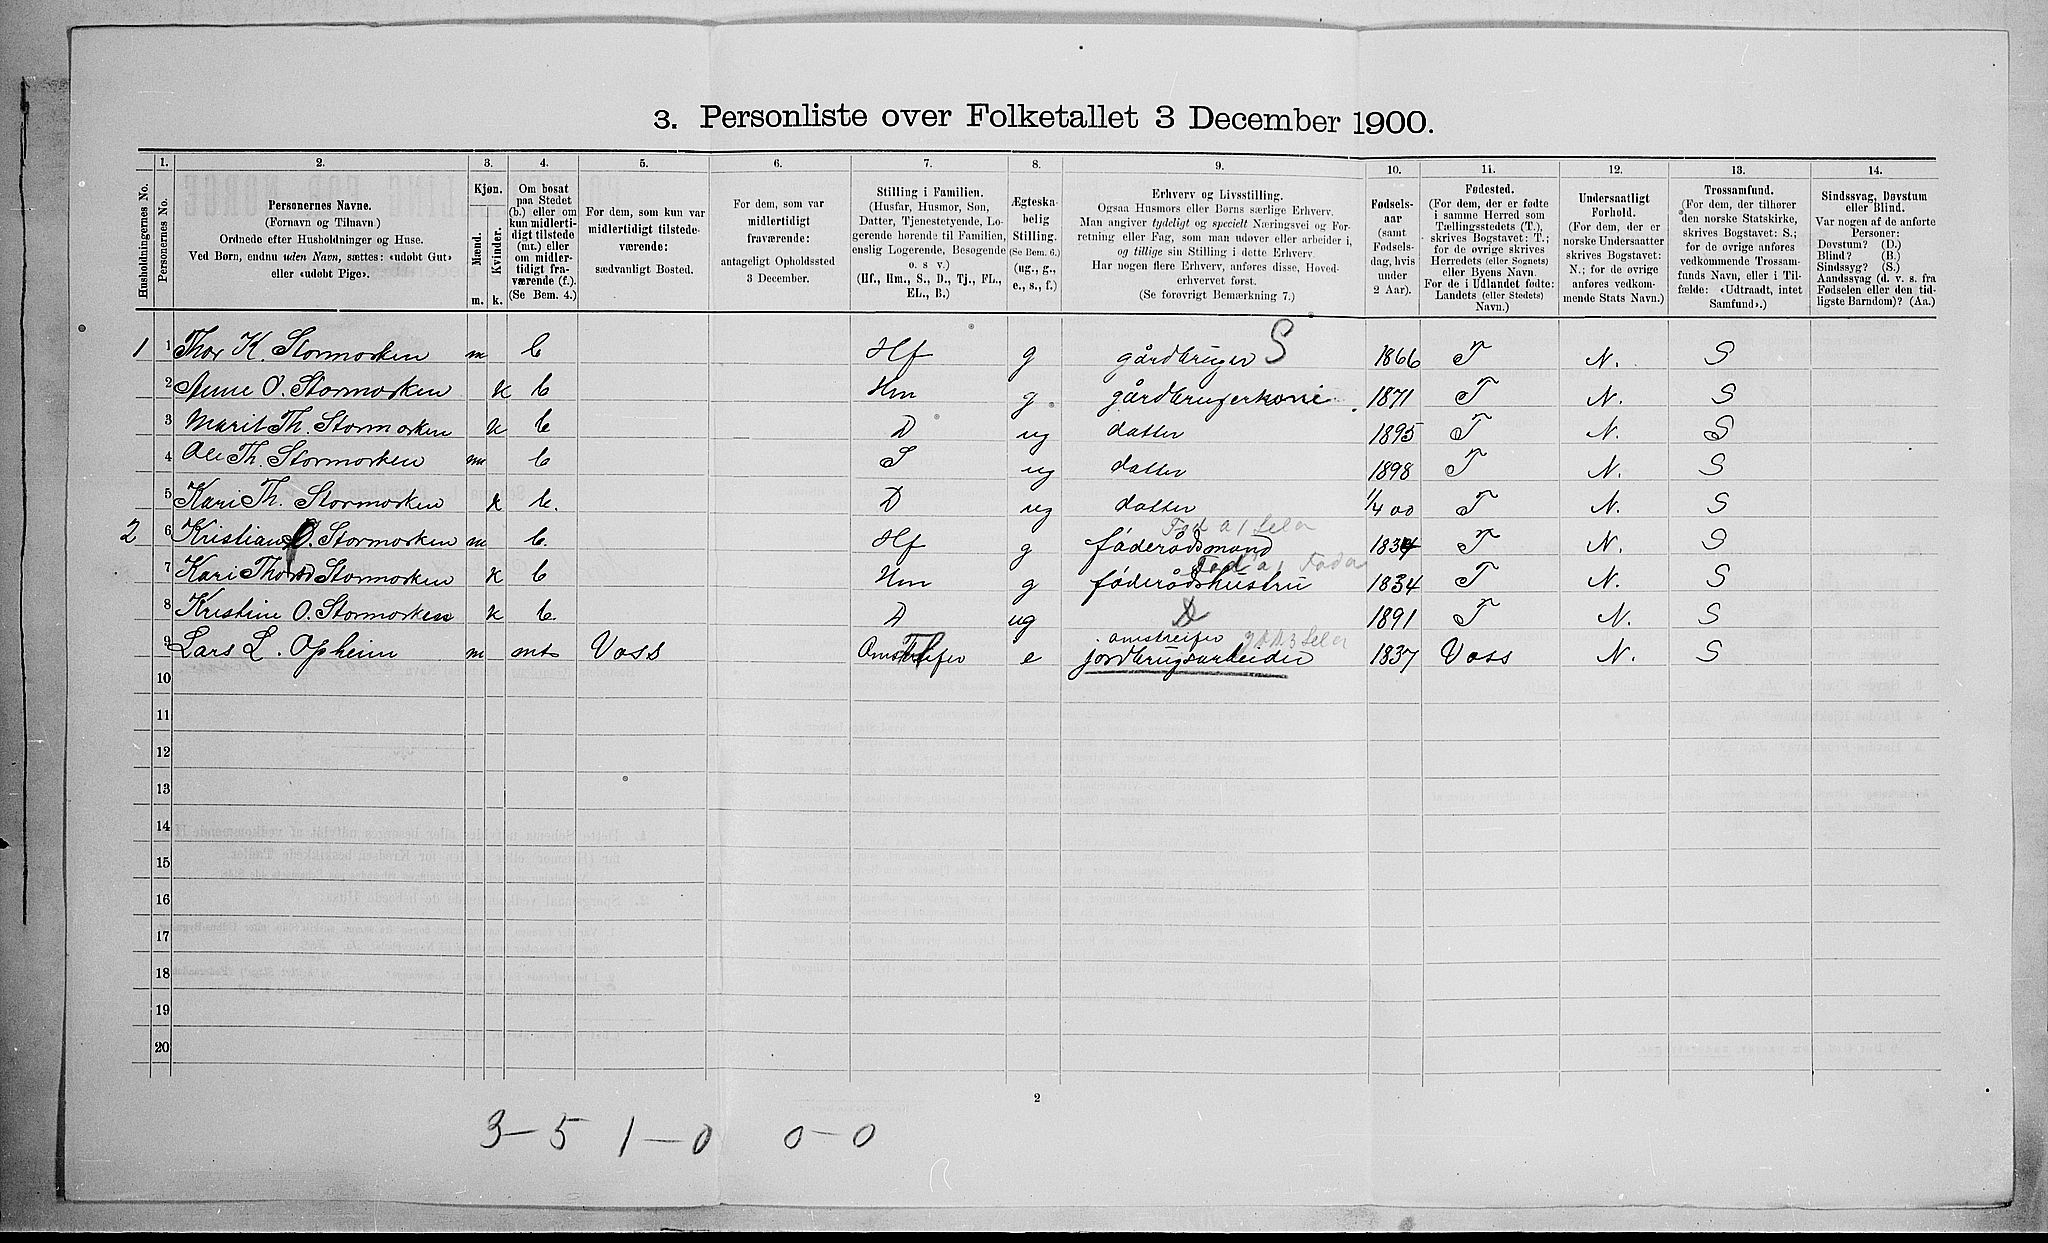 3. Personliste over Folketallet 3 December 1900.
Husholdningernes No.
1. Personernes No.
2. Personernes Navne. (Fornavn og Tilnavn.) Ordnede efter Husholdninger og Huse. Ved Børn, endnu uden Navn, sættes: «udøbt Gut» eller «udøbt Pige».
3. Kjøn. Mænd. m. Kvinder. k.
4. Om bosat paa Stedet (b.) eller om kun midlertidigt tilstede (mt.) eller om midlertidigt fraværende (f.). (Se Bem. 4.)
5. For dem, som kun var midlertidigt tilstedeværende: sædvanligt Bosted.
6. For dem, som var midlertidigt fraværende: antageligt Opholdssted 3 December.
7. Stilling i Familien. (Husfar, Husmor, Søn, Datter, Tjenestetyende, Logerende hørende til Familien, enslig Logerende, Besøgende o. s. v.) (Hf., Hm., S., D., Tj., FL., EL., B.)
8. Ægteskabelig Stilling. (Se Bem. 6.) (ug., g., e., s., f.)
9. Erhverv og Livsstilling. Ogsaa Husmors eller Børns særlige Erhverv. Man angiver tydeligt og specielt Næringsvei og Forretning eller Fag, som man udøver eller arbeider i, og tillige sin Stilling i dette Erhverv. Har nogen flere Erhverv, anføres disse, Hovederhvervet først. (Se forøvrigt Bemærkning 7.)
10. Fødselsaar (samt Fødselsdag, hvis under 2 Aar).
11. Fødested. (For dem, der er fødte i samme Herred som Tællingsstedets (T.), skrives Bogstavet: T.; for de øvrige skrives Herredets (eller Sognets) eller Byens Navn. For de i Udlandet fødte: Landets (eller Stedets) Navn.)
12. Undersaatligt Forhold. (For dem, der er norske Undersaatter skrives Bogstavet: N.; for de øvrige anføres vedkommende Stats Navn.)
13. Trossamfund. (For dem, der tilhører den norske Statskirke, skrives Bogstavet: S.; for de øvrige anføres vedkommende Trossamfunds Navn, eller i Tilfælde: «Udtraadt, intet Samfund».)
14. Sindssvag, Døvstum eller Blind. Var nogen af de anførte Personer: Døvstum? (D.) Blind? (B.) Sindssyg? (S.) Aandssvag (d. v. s. fra Fødselen eller den tidligste Barndom)? (Aa.)
1 1 Thor K. Stormorken m b Hf g gårdbruger S 1866 T N. S
2 Anne O. Stormorken k b Hm g gårdbrugerkone 1871 T N. S
3 Marit Th. Stormorken k b D ug datter 1895 T N. S
4 Ole Th. Stormorken m b S ug datter 1898 T N. S
5 Kari Th. Stormorken k b. D ug datter 1/4 00 T N. S
2 6 Kristian O. Stormorken m b. Hf g føderådsmand 1834 T N. S
7 Kari Thord Stormorken k b Hm g føderådshustru 1834 T N. S
8 Kristine O. Stormorken k b. D ug D 1891 T N. S
9 Lars L. Opheim m mt Voss e omstreifer jordbrugsarbeider 1837 Voss N. S
10
11
12
13
14
15
16
17
18
19
20
2
3 – 5 1 – 0 0 – 0